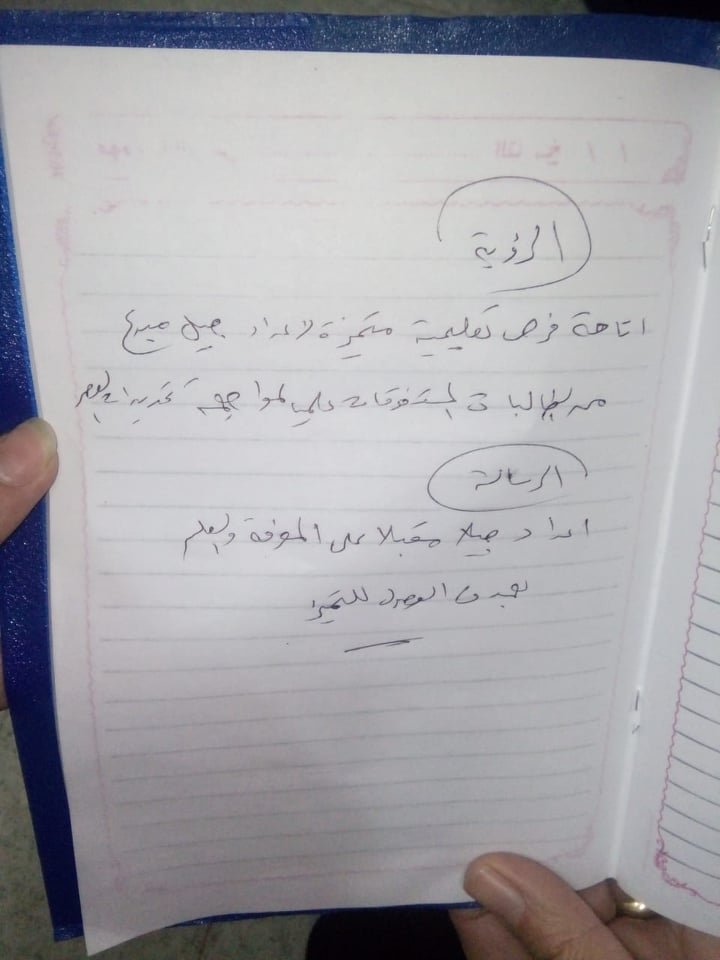 الرؤية
اتاحة فرص تعليمية متميزة لاعداد جيل مبدع
من الطالبات المتفوقات علمياً لمواجهة تحديات العصر
الرسالة
اعداد جيلا مقبلا على المعرفة والعلم
بهدف الوصول للتميز